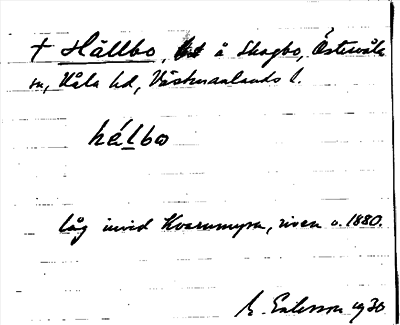 † Hållbo, bst å Skogbo, Östervåla
sn, Våla hd, Västmanlands l.
hélbo
låg invid Kvarnmyrn, riven o. 1880.
E. Eriksson 1930